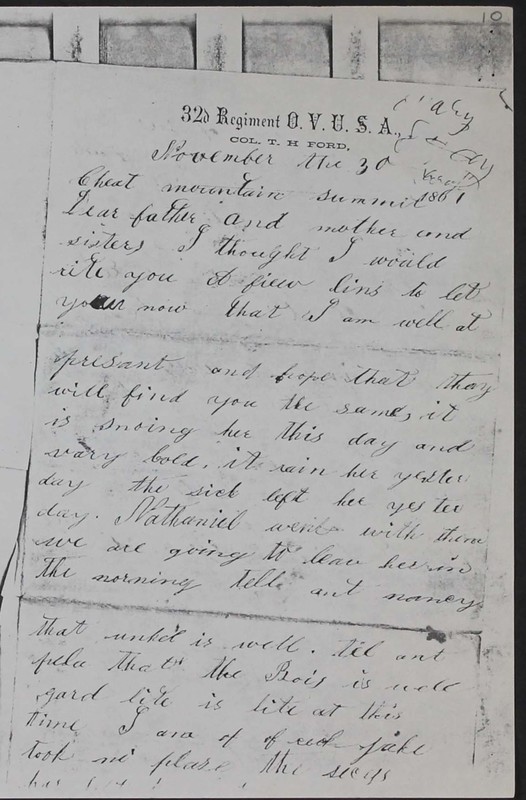 10
32d Regiment O. V. U. S. A.,
COL. T. H FORD,
November the 30
Cheat mountain summit 1861
Dear father and mother and
sisters I thought I would
rite you A fiew lins to let
you now that I am well at
presant and hope that thay
will find you the same, it
is snoing her this day and
vary Cold. it rain her yester
day the sick left her yester
day. Nathaniel went with them
we are going to leav her in
the morning tell ant nancy
that unkel is well. tel ant
that the Bois is well
gard lite is lite at this
time I am of jake
took mi plase the